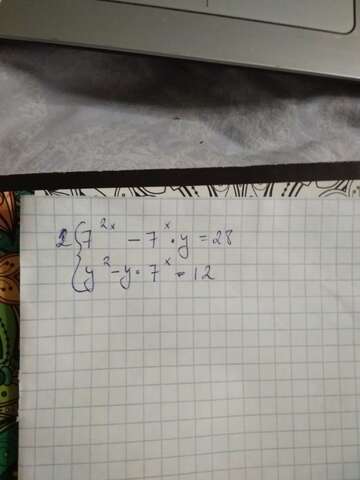 2 { 7^{2x} - 7^x · y = 28
y^2 - y · 7^x = 12